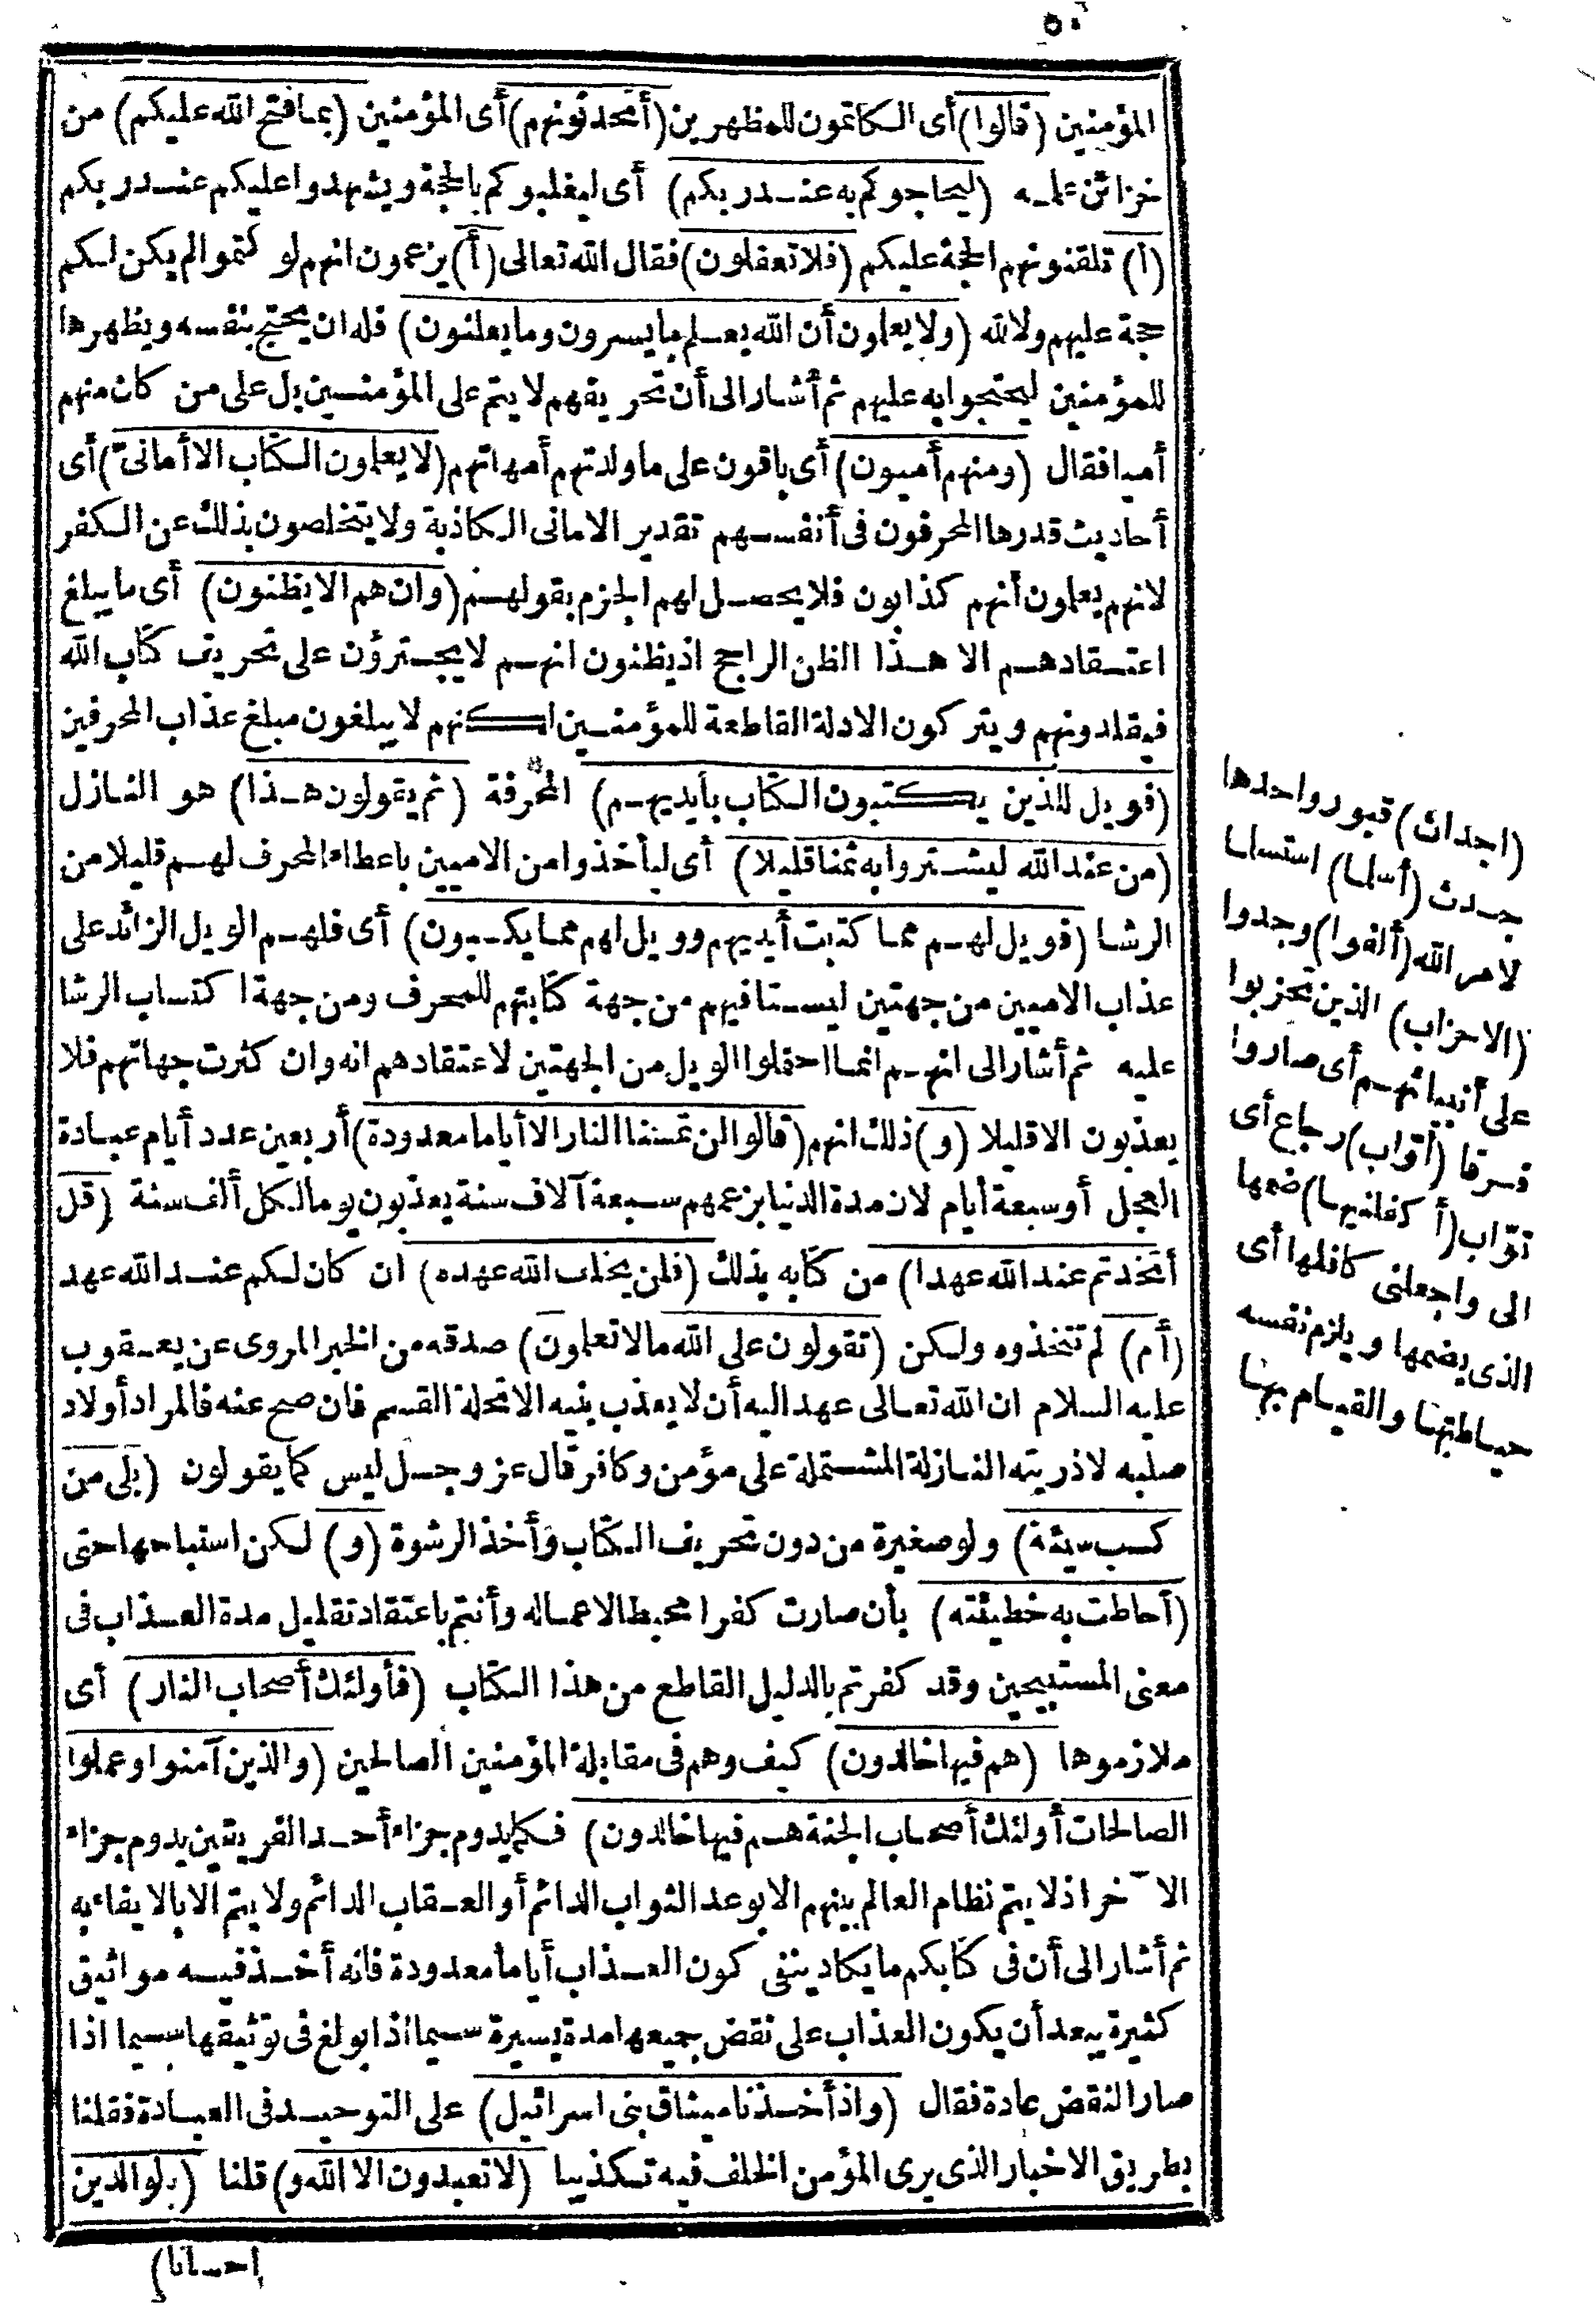 ٥٠
المؤمنين (قالوا) أى الكاتمون للمظهرين (أتحدثونهم) أى المؤمنين (بما فتح الله عليكم) من
خزائن علمه (ليحاجوكم به عند ربكم) أى ليغلبوكم بالحجة ويشهدوا عليكم عند ربكم
(ا) تلقنونهم الحجة عليكم (فلا تعقلون) فقال الله تعالى (أ) يزعمون انهم لو كتموا لم يكن لكم
حجة عليهم ولا لله (ولا يعلمون أن الله يعلم ما يسرون وما يعلنون) فله ان يحتج بنفسه ويظهرها
للمؤمنين ليحتجوا به عليهم ثم أشار الى أن تحريفهم لا يتم على المؤمنين بل على من كان منهم
أميا فقال (ومنهم أميون) أى باقون على ما ولدتهم أمهاتهم (لا يعلمون الكتاب الا أمانىّ) أى
أحاديث قدرها المحرفون فى أنفسهم تقدير الامانى الكاذبة ولا يتخلصون بذلك عن الكفر
لانهم يعلمون أنهم كذابون فلا يحصل لهم الجزم بقولهم (وان هم الا يظنون) أى ما يبلغ
اعتقادهم الا هذا الظن الراجح اذ يظنون انهم لا يجترؤن على تحريف كتاب الله
فيقلدونهم ويتركون الادلة القاطعة للمؤمنين لكنهم لا يبلغون مبلغ عذاب المحرفين
(فويل للذين يكتبون الكتاب بأيديهم) المحرّفة (ثم يقولون هذا) هو النازل
(من عند الله ليشتروا به ثمنا قليلا) أى ليأخذوا من الاميين باعطاء المحرف لهم قليلا من
الرشا (فويل لهم مما كتبت أيديهم وويل لهم مما يكسبون) أى فلهم الويل الزائد على
عذاب الاميين من جهتين ليستا فيهم من جهة كتابتهم للمحرف ومن جهة اكتساب الرشا
عليه ثم أشار الى انهم انما احتملوا الويل من الجهتين لاعتقادهم انه وان كثرت جهاتهم فلا
يعذبون الا قليلا (و) ذلك انهم (قالوا لن تمسنا النار الا أياما معدودة) أربعين عدد أيام عبادة
العجل أو سبعة أيام لان مدة الدنيا بزعمهم سبعة آلاف سنة يعذبون يوما لكل ألف سنة (قل
أتخذتم عند الله عهدا) من كتابه بذلك (فلن يخلف الله عهده) ان كان لكم عند الله عهد
(أم) لم تتخذوه ولكن (تقولون على الله ما لا تعلمون) صدقه من الخبر المروى عن يعقوب
عليه السلام ان الله تعالى عهد اليه أن لا يعذب بنيه الا تحلة القسم فان صح عنه فالمراد أولاد
صلبه لا ذريته النازلة المشتملة على مؤمن وكافر قال عز وجل ليس كما يقولون (بلى من
كسب سيئة) ولو صغيرة من دون تحريف الكتاب وأخذ الرشوة (و) لكن استباحها حتى
(أحاطت به خطيئته) بأن صارت كفرا محيطا لاعماله وأنتم باعتقاد تقليل مدة العذاب فى
معنى المستبيحين وقد كفرتم بالدليل القاطع من هذا الكتاب (فأولئك أصحاب النار) أى
ملازموها (هم فيها خالدون) كيف وهم فى مقابلة المؤمنين الصالحين (والذين آمنوا وعملوا
الصالحات أولئك أصحاب الجنة هم فيها خالدون) فكما يدوم جزاء أحد الفريقين يدوم جزاء
الآخر اذ لا يتم نظام العالم بينهم الا بوعد الثواب الدائم أو العقاب الدائم ولا يتم الا بالايفاء به
ثم أشار الى أن فى كتابكم ما يكاد ينفى كون العذاب أياما معدودة فانه أخذ فيه مواثيق
كثيرة يبعد أن يكون العذاب على نقض جميعها مدة يسيرة سيما اذا بولغ فى توثيقها سيما اذا
صار النقض عادة فقال (واذ أخذنا ميثاق بنى اسرائيل) على التوحيد فى العبادة فقلنا
بطريق الاخبار الذى يرى المؤمن الخلف فيه تكذيبا (لا تعبدون الا الله و) قلنا (بالوالدين
احسانا)
(اجداث) قبور واحدها
جدث (أسلما) استسلما
لامر الله (ألفوا) وجدوا
(الاحزاب) الذين تحزبوا
على أنبيائهم أى صاروا
فرقا (أوّاب) رجاع أى
توّاب (أكفلنيها) ضمها
الى واجعلنى كافلها أى
الذى يضمها ويلزم نفسه
حياطتها والقيام بها